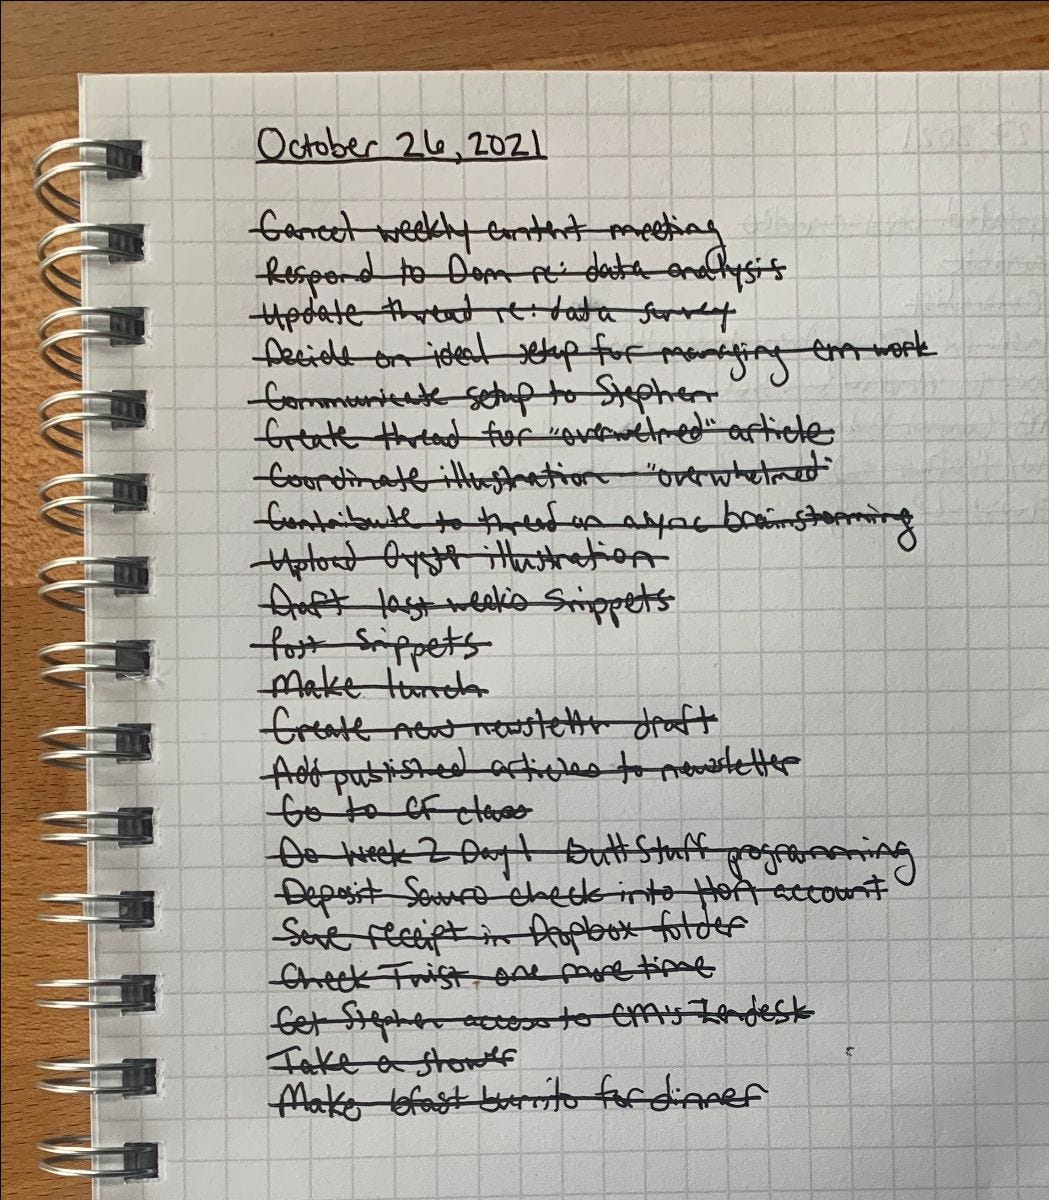 October 26, 2021
Cancel weekly content meeting
Respond to Dom re: data analysis
Update thread re: data survey
Decide on ideal setup for managing em work
Communicate setup to Stephen
Create thread for "overwelmed" article
Coordinate illustration "overwhelmed"
Contribute to thread on async brainstorming
Upload illustration
Draft last week's Snippets
Post Snippets
Make lunch
Create new newsletter draft
Add published articles to newsletter
Go to CF class
Do Week 2 Day 1 Butt Stuff programming
Deposit check into HOA account
Save receipt in Dropbox folder
Check Twist one more time
Get Stephen access to EM's Zendesk
Take a shower
Make bfast burrito for dinner